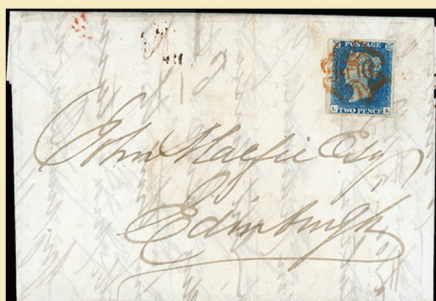 POSTAGE
TWO PENCE
John Macfie Esq
Edinburgh